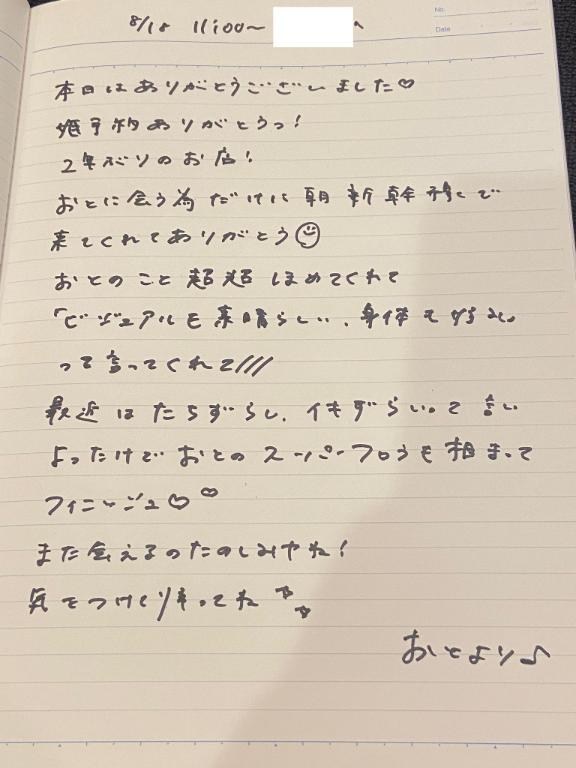 No.
Date
8/18 11:00~ へ
本日はありがとうございました♡
姫予約ありがとうっ!
2年ぶりのお店!
おとに会う為だけに朝新幹線で
来てくれてありがとう☺
おとのこと超超ほめてくれて
「ビジュアルも素晴らしい、身体も好み。
って言ってくれて///
最近はたちずらし、イキずらいって言い
よったけどおとのスーパーフロうも相まって
フィニッシュ♡♡
また会えるのたのしみやね!
気をつけて帰ってね
おとより♪